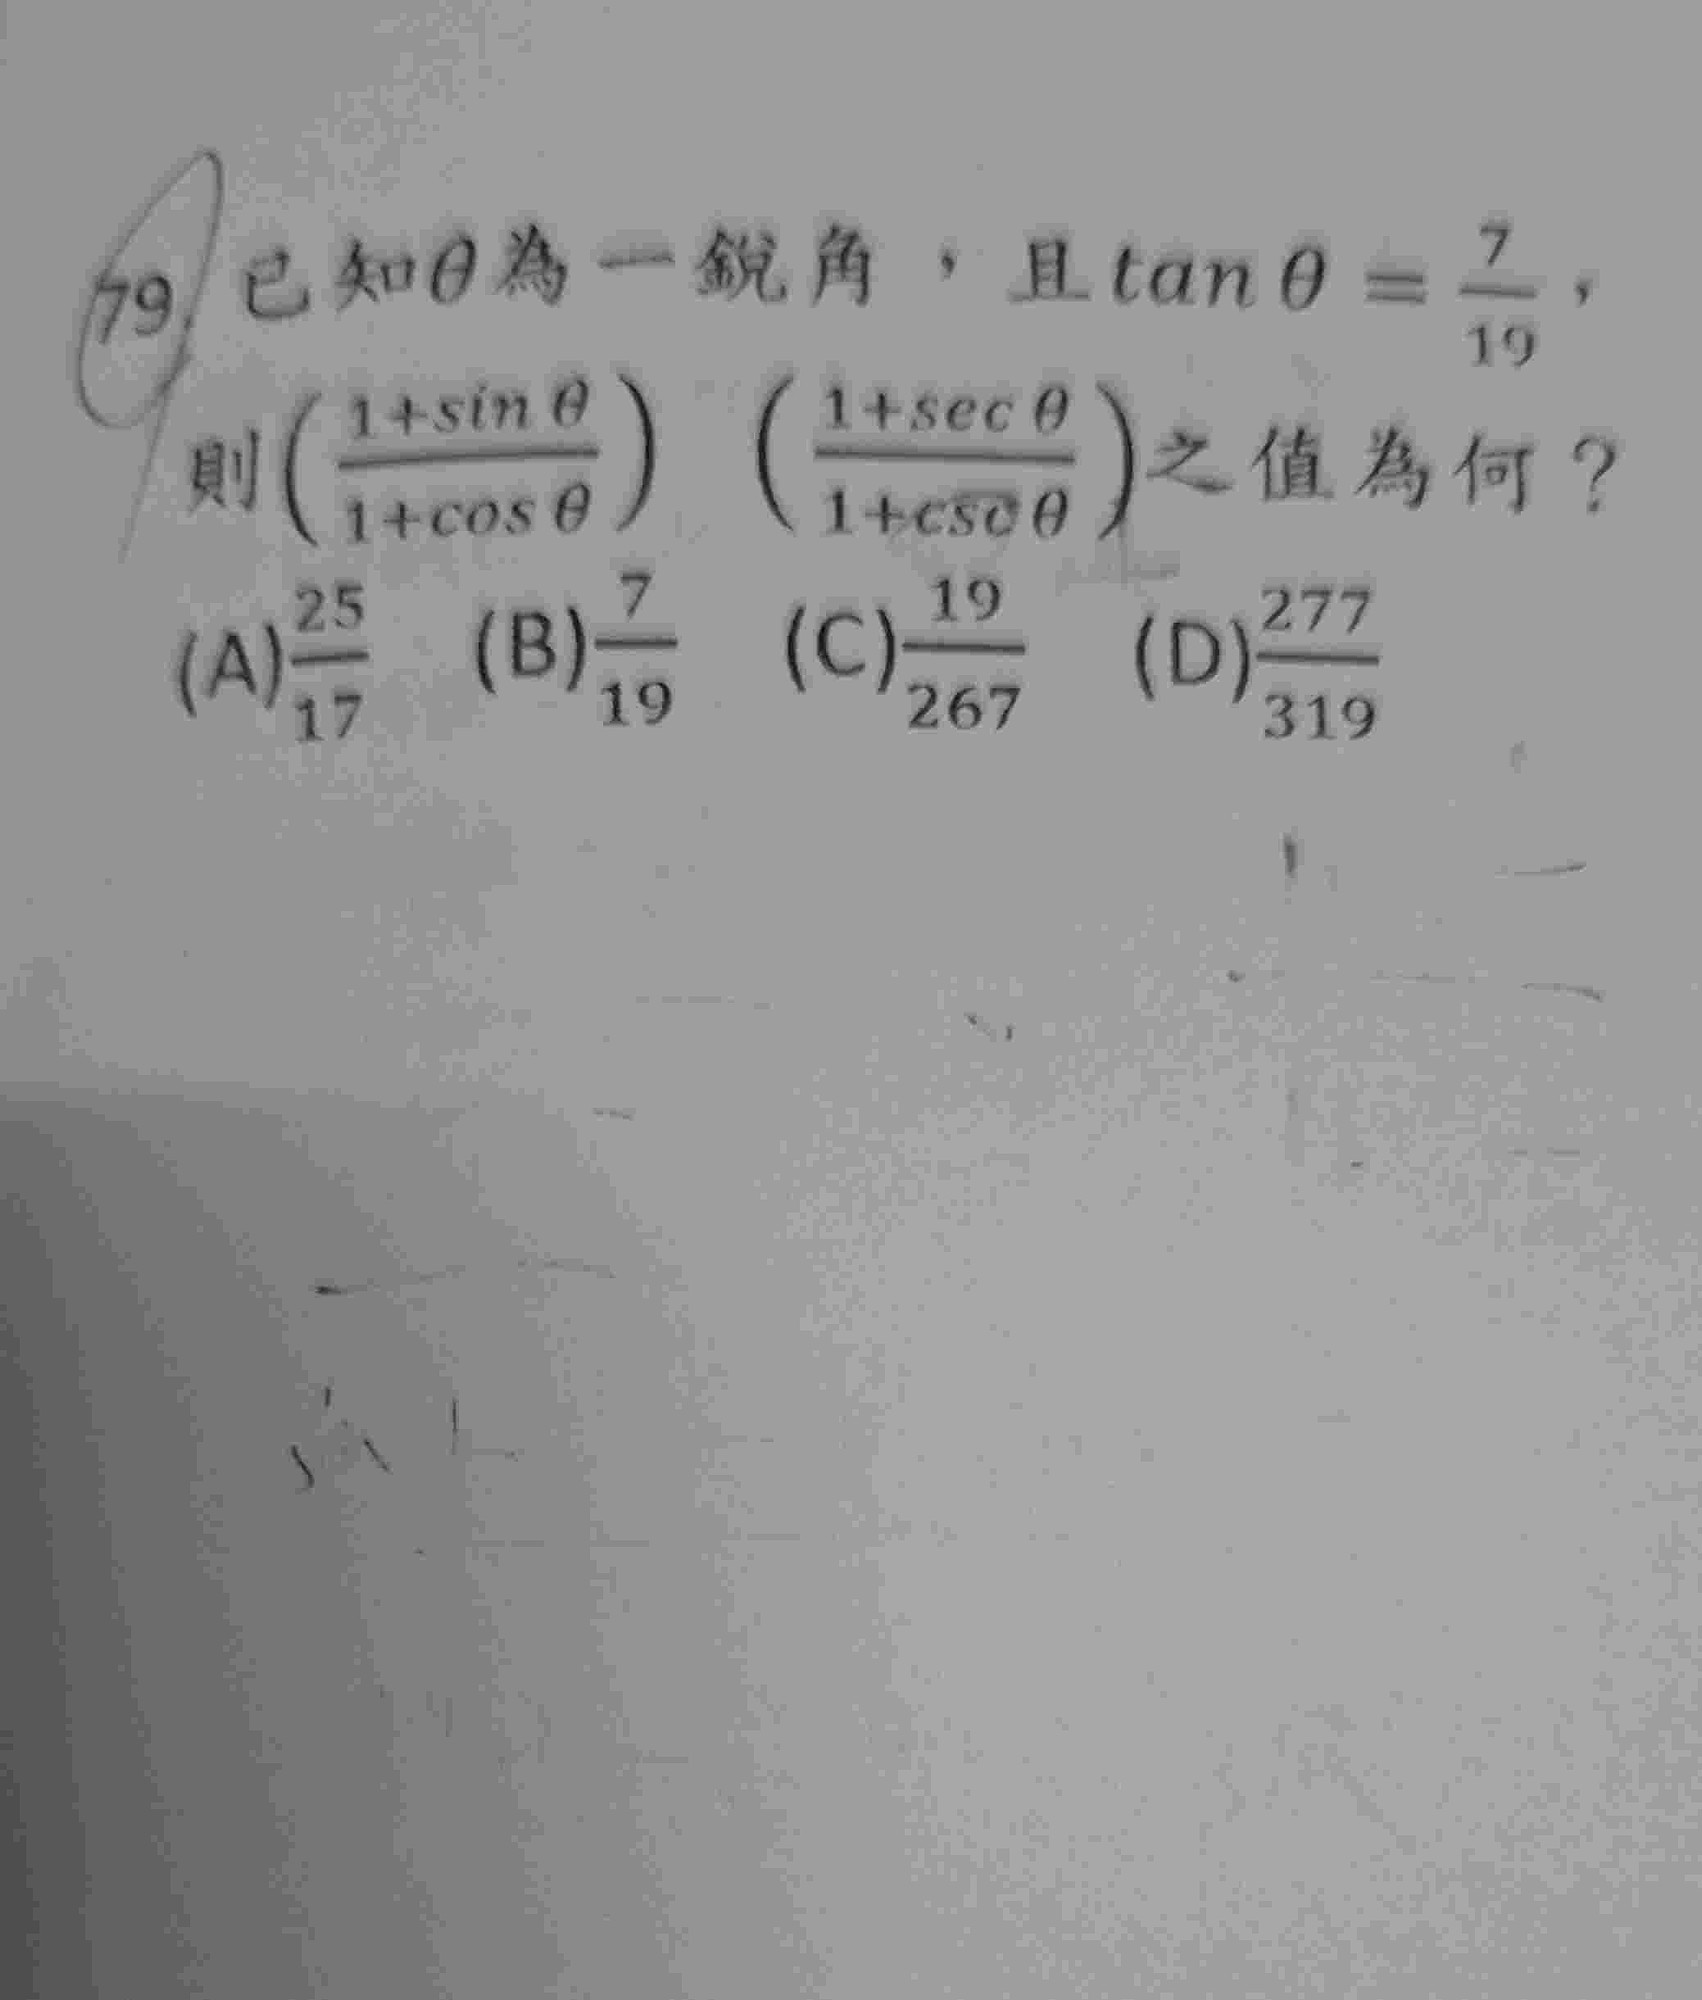 79. 已知θ為一銳角，且tan θ = 7/19，
則((1+sin θ)/(1+cos θ)) ((1+sec θ)/(1+csc θ))之值為何？
(A)25/17 (B)7/19 (C)19/267 (D)277/319